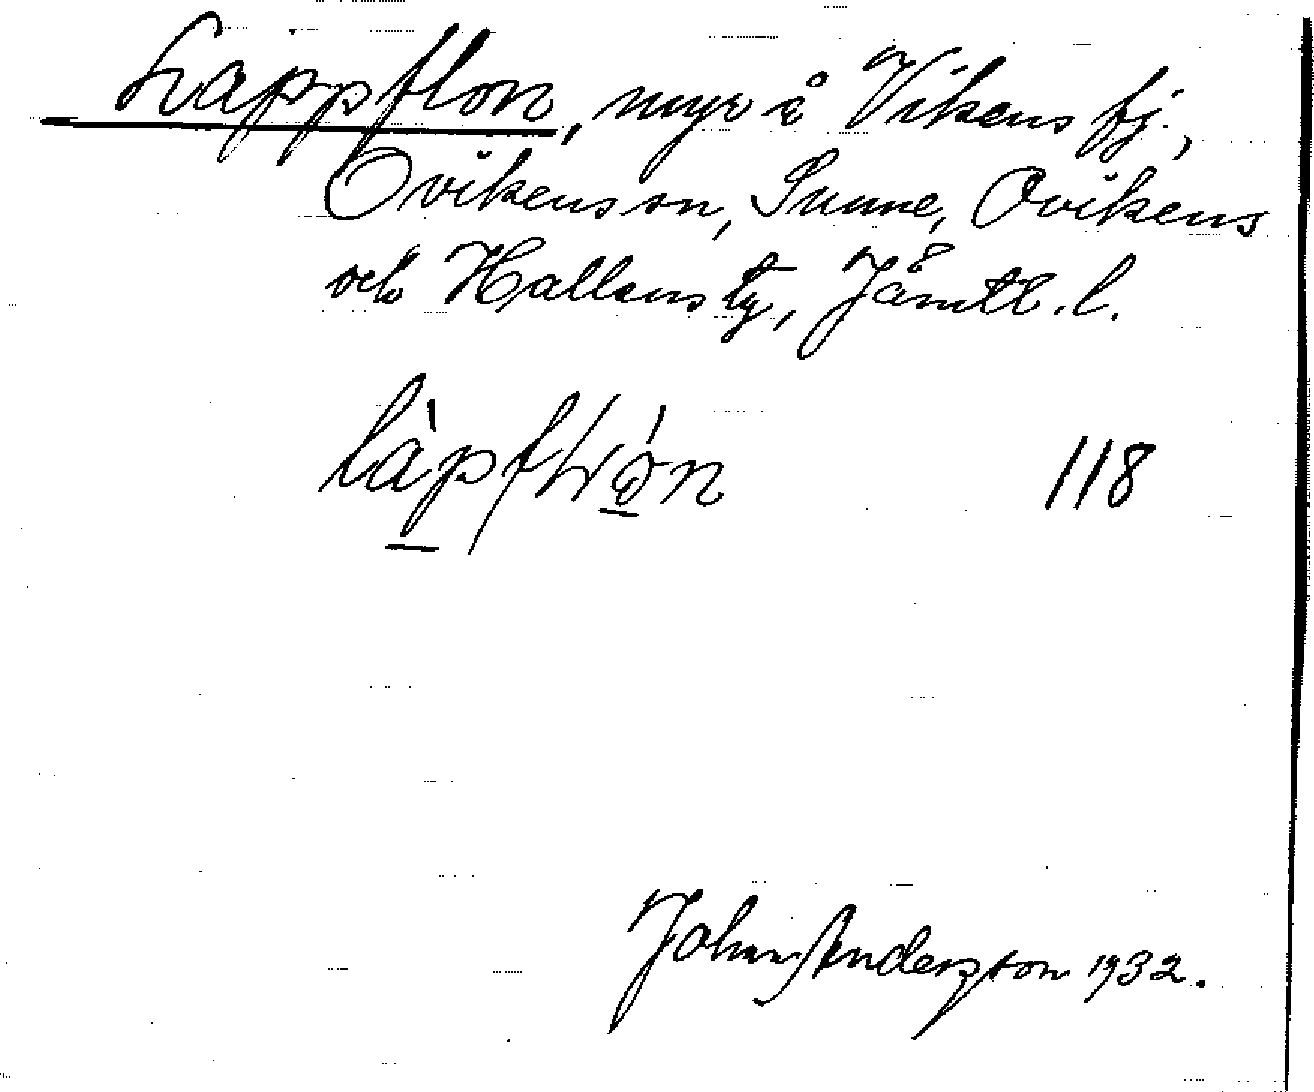 Lappflon, myr å Vikens fj.,
Ovikens sn, Sunne, Ovikens
och Hallens tg, Jämtl. l.
118
Johan Anderzson 1932.